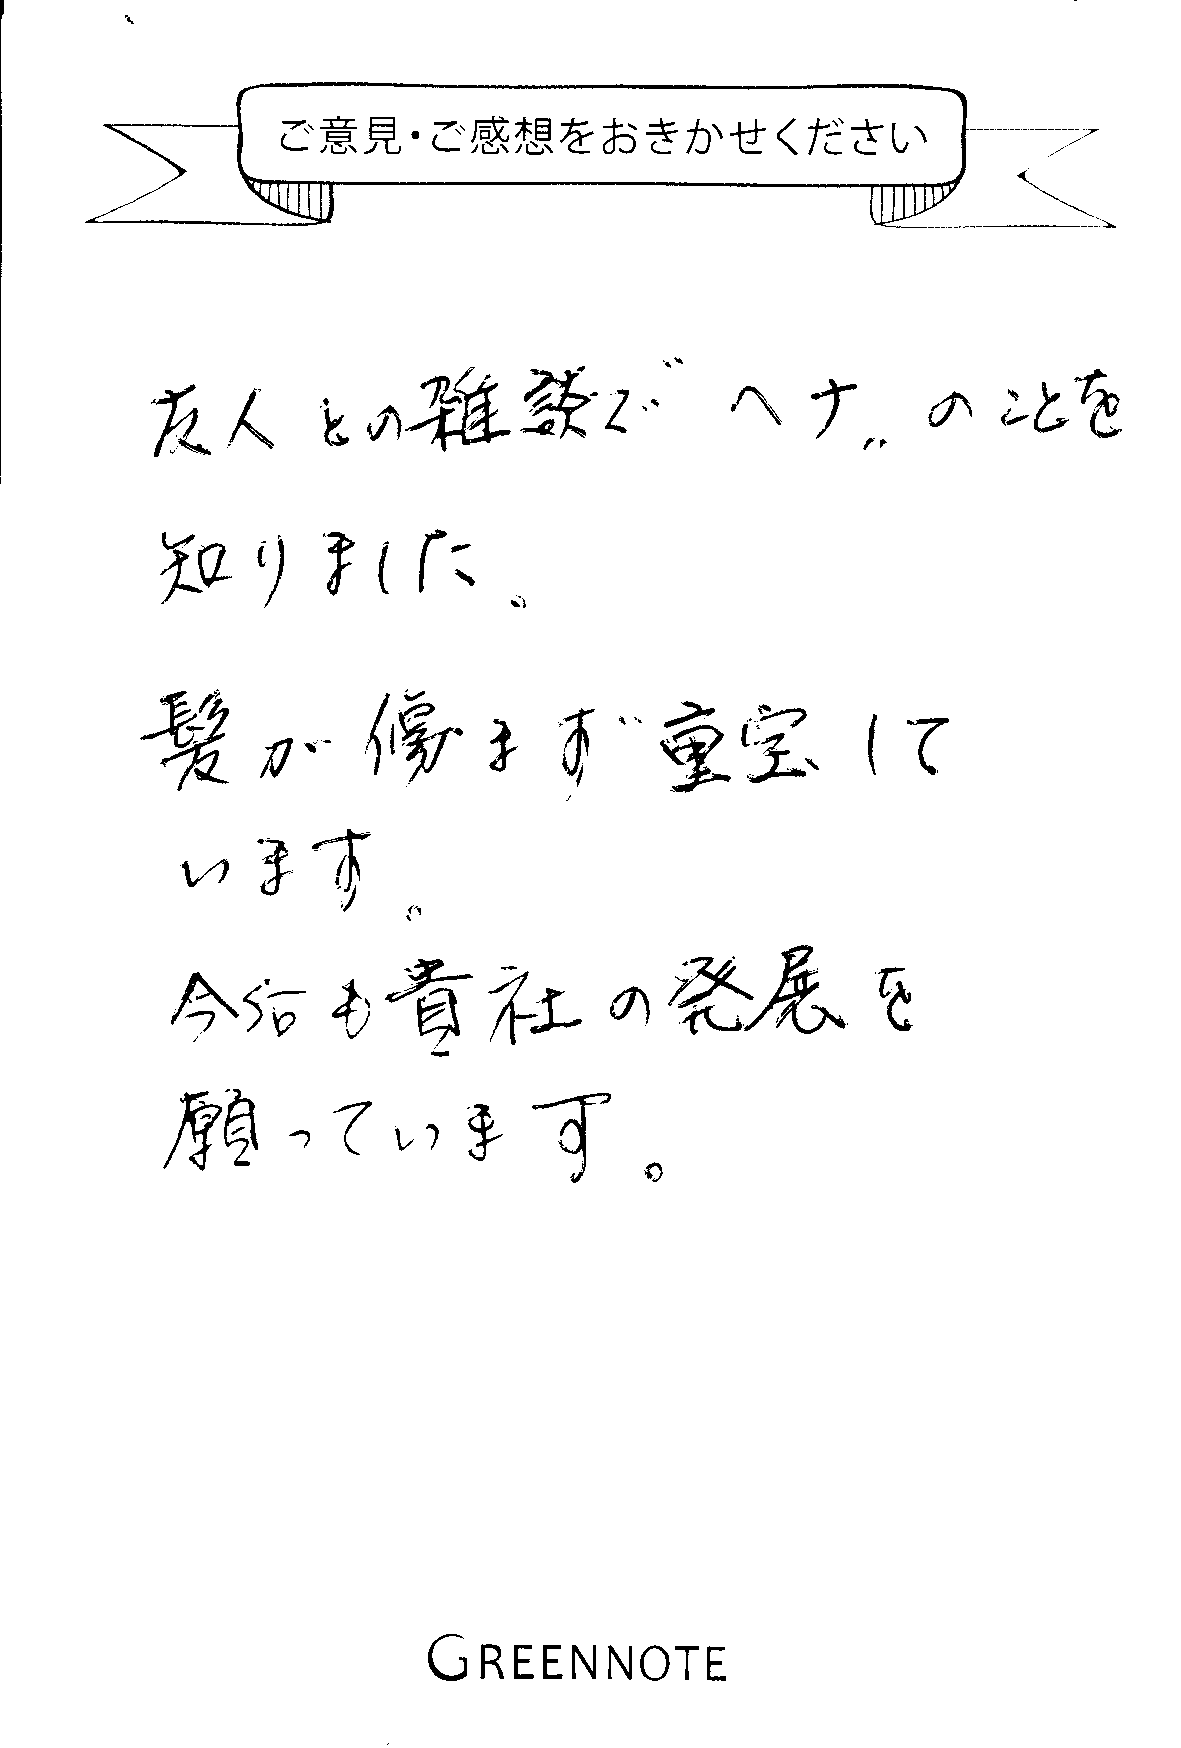 ご意見・ご感想をおきかせください
友人との雑談で〝ヘナ〟のことを
知りました。
髪が傷まず重宝して
います。
今后も貴社の発展を
願っています。
GREENNOTE